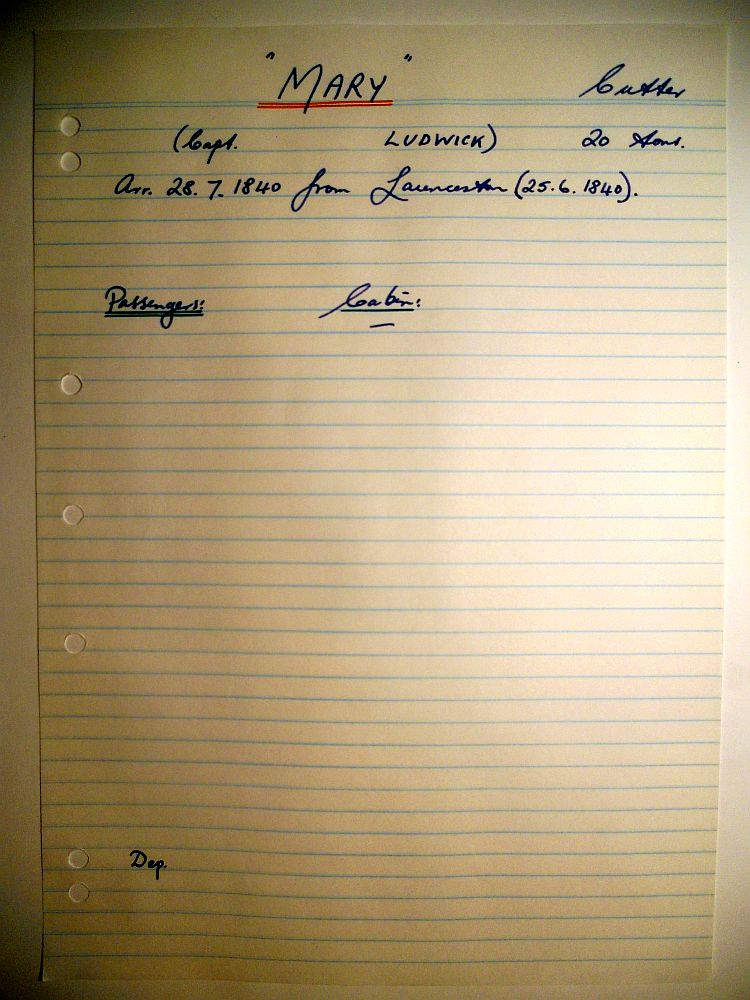 "MARY" Cutter
(Capt. LUDWICK) 20 tons.
Arr. 28.7.1840 from Launceston (25.6.1840).
Passengers: Cabin:
—
Dep.